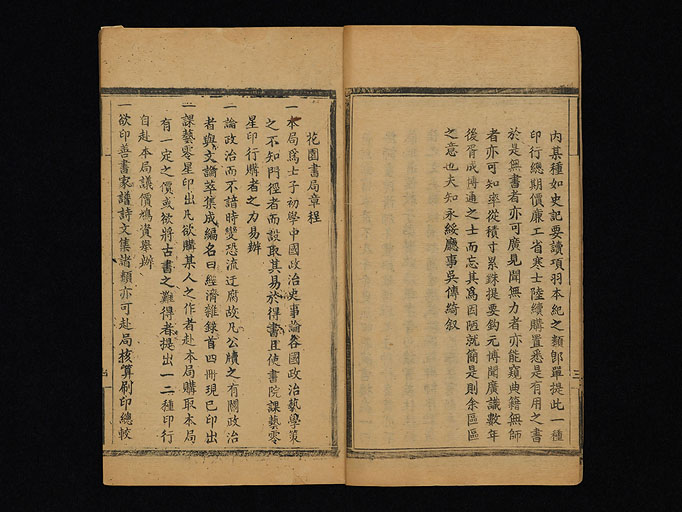 內某種如史記要讀項羽本紀之類卽單提此一種
印行總期價廉工省寒士陸續購置悉是有用之書
於是無書者亦可廣見聞無力者亦能窺典籍無師
者亦可知率從積寸累銖提要鈎元博聞廣識數年
後胥成博通之士而忘其爲因陋就簡是則余區區
之意也夫知永綏廳事吳傳綺叙
三
花園書局章程
一本局爲士子初學中國政治史事論各國政治藝學策
之不知門徑者而設取其易於得書且使書院課藝零
星印行購者之力易辦
一論政治而不諳時變恐流迂腐故凡公牘之有關政治
者與文論萃集成編名曰經濟雜錄首四冊現已印出
一課藝零星印出凡欲購某人之作者赴本局購取本局
有一定之價或欲將古書之難得者提出一二種印行
自赴本局議價鳩資舉辦
一欲印善書家譜詩文集諸類亦可赴局核算刷印總較